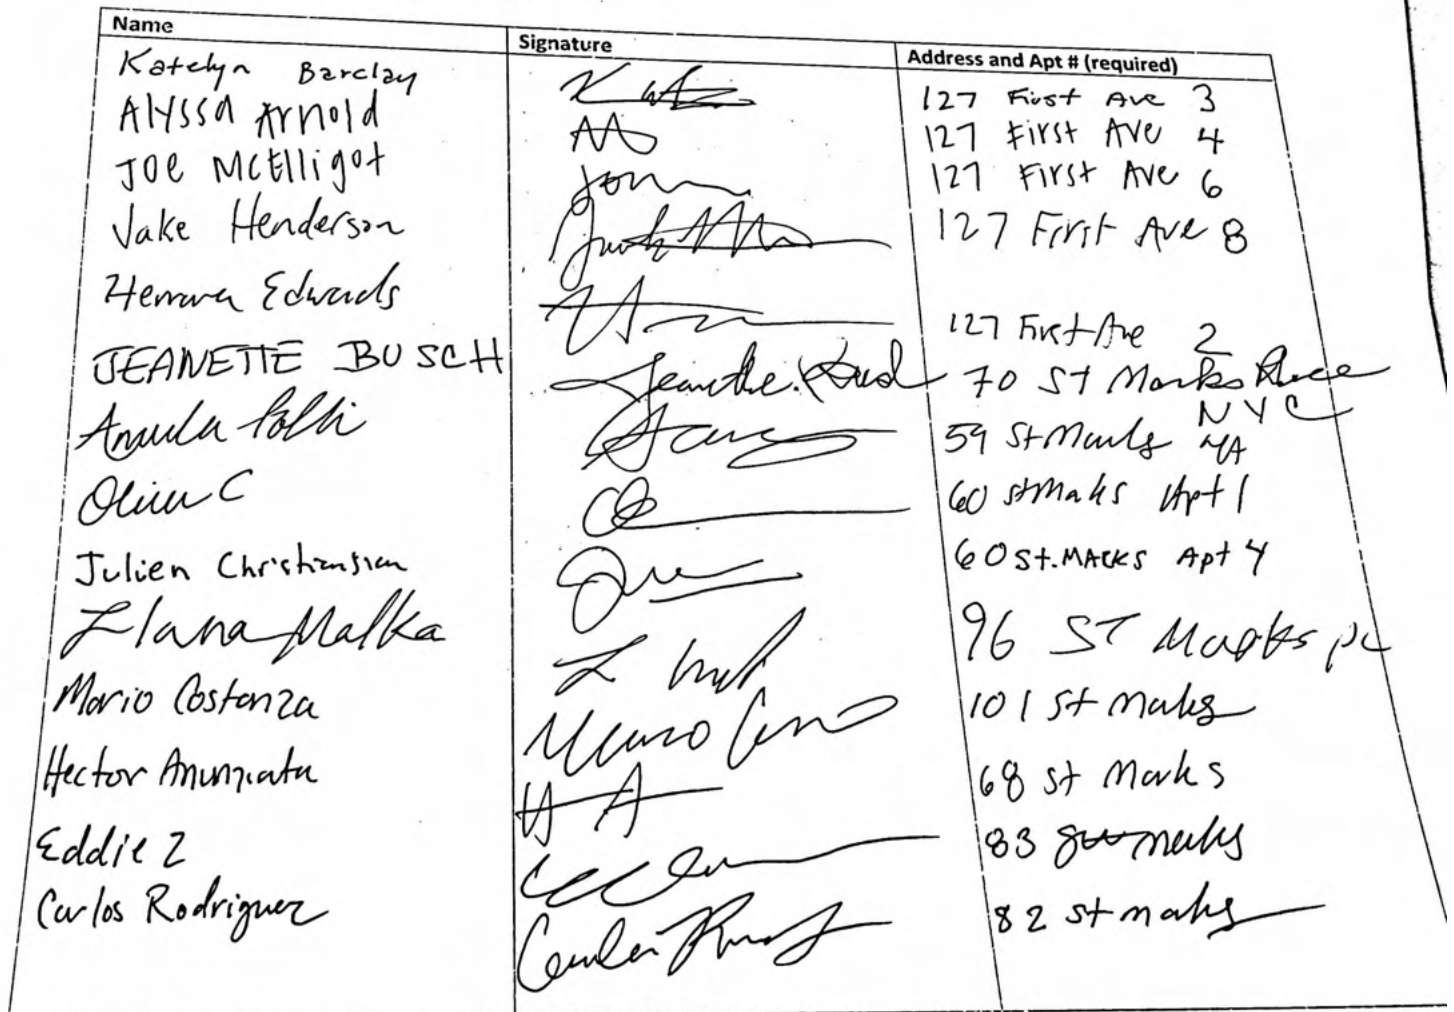 Name Signature Address and Apt # (required)
Katelyn Barclay 127 First Ave 3
Alyssa Arnold 127 First Ave 4
Joe McElligot 127 First Ave 6
Jake Henderson 127 First Ave 8
Edwards 127 First Ave 2
JEANETTE BUSCH Jeanette Busch 70 St Marks Place
NYC
59 St Marks 4A
Oliver C 60 St Marks Apt 1
Julien Christiansian 60 St. Marks Apt 4
Llana Malka 96 ST Marks pl
Mario Costanza 101 St Marks
Hector Anunziata H A 68 St Marks
Eddie Z 83 St Marks
Carlos Rodriguez 82 St Marks